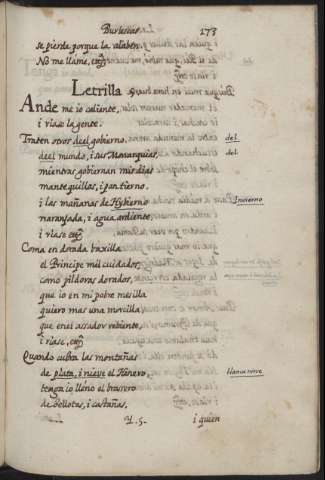 Burlescas 273
se pierda porque la alaben.
No me llame, etc.
Letrilla 9
Ande me io caliente,
i riase la gente.
Traten otros deel gobierno, del
deel mundo, i sus Monarquias, del
mientras gobiernan mis dias
mantequillas, i pan tierno,
i las mañanas de Hybierno Invierno
naranjada, i agua ardiente,
i riase etc.
Coma en dorada baxilla
el Principe mil cuidados,
como pildoras dorados,
que io en mi pobre mesilla
quiero mas una morcilla
que en el assador rebiente,
i riase, etc.
Quando cubra las montañas
de plata, i nieve el Henero, blanca nieve
tenga io lleno el brasero
de bellotas, i castañas,
i quien